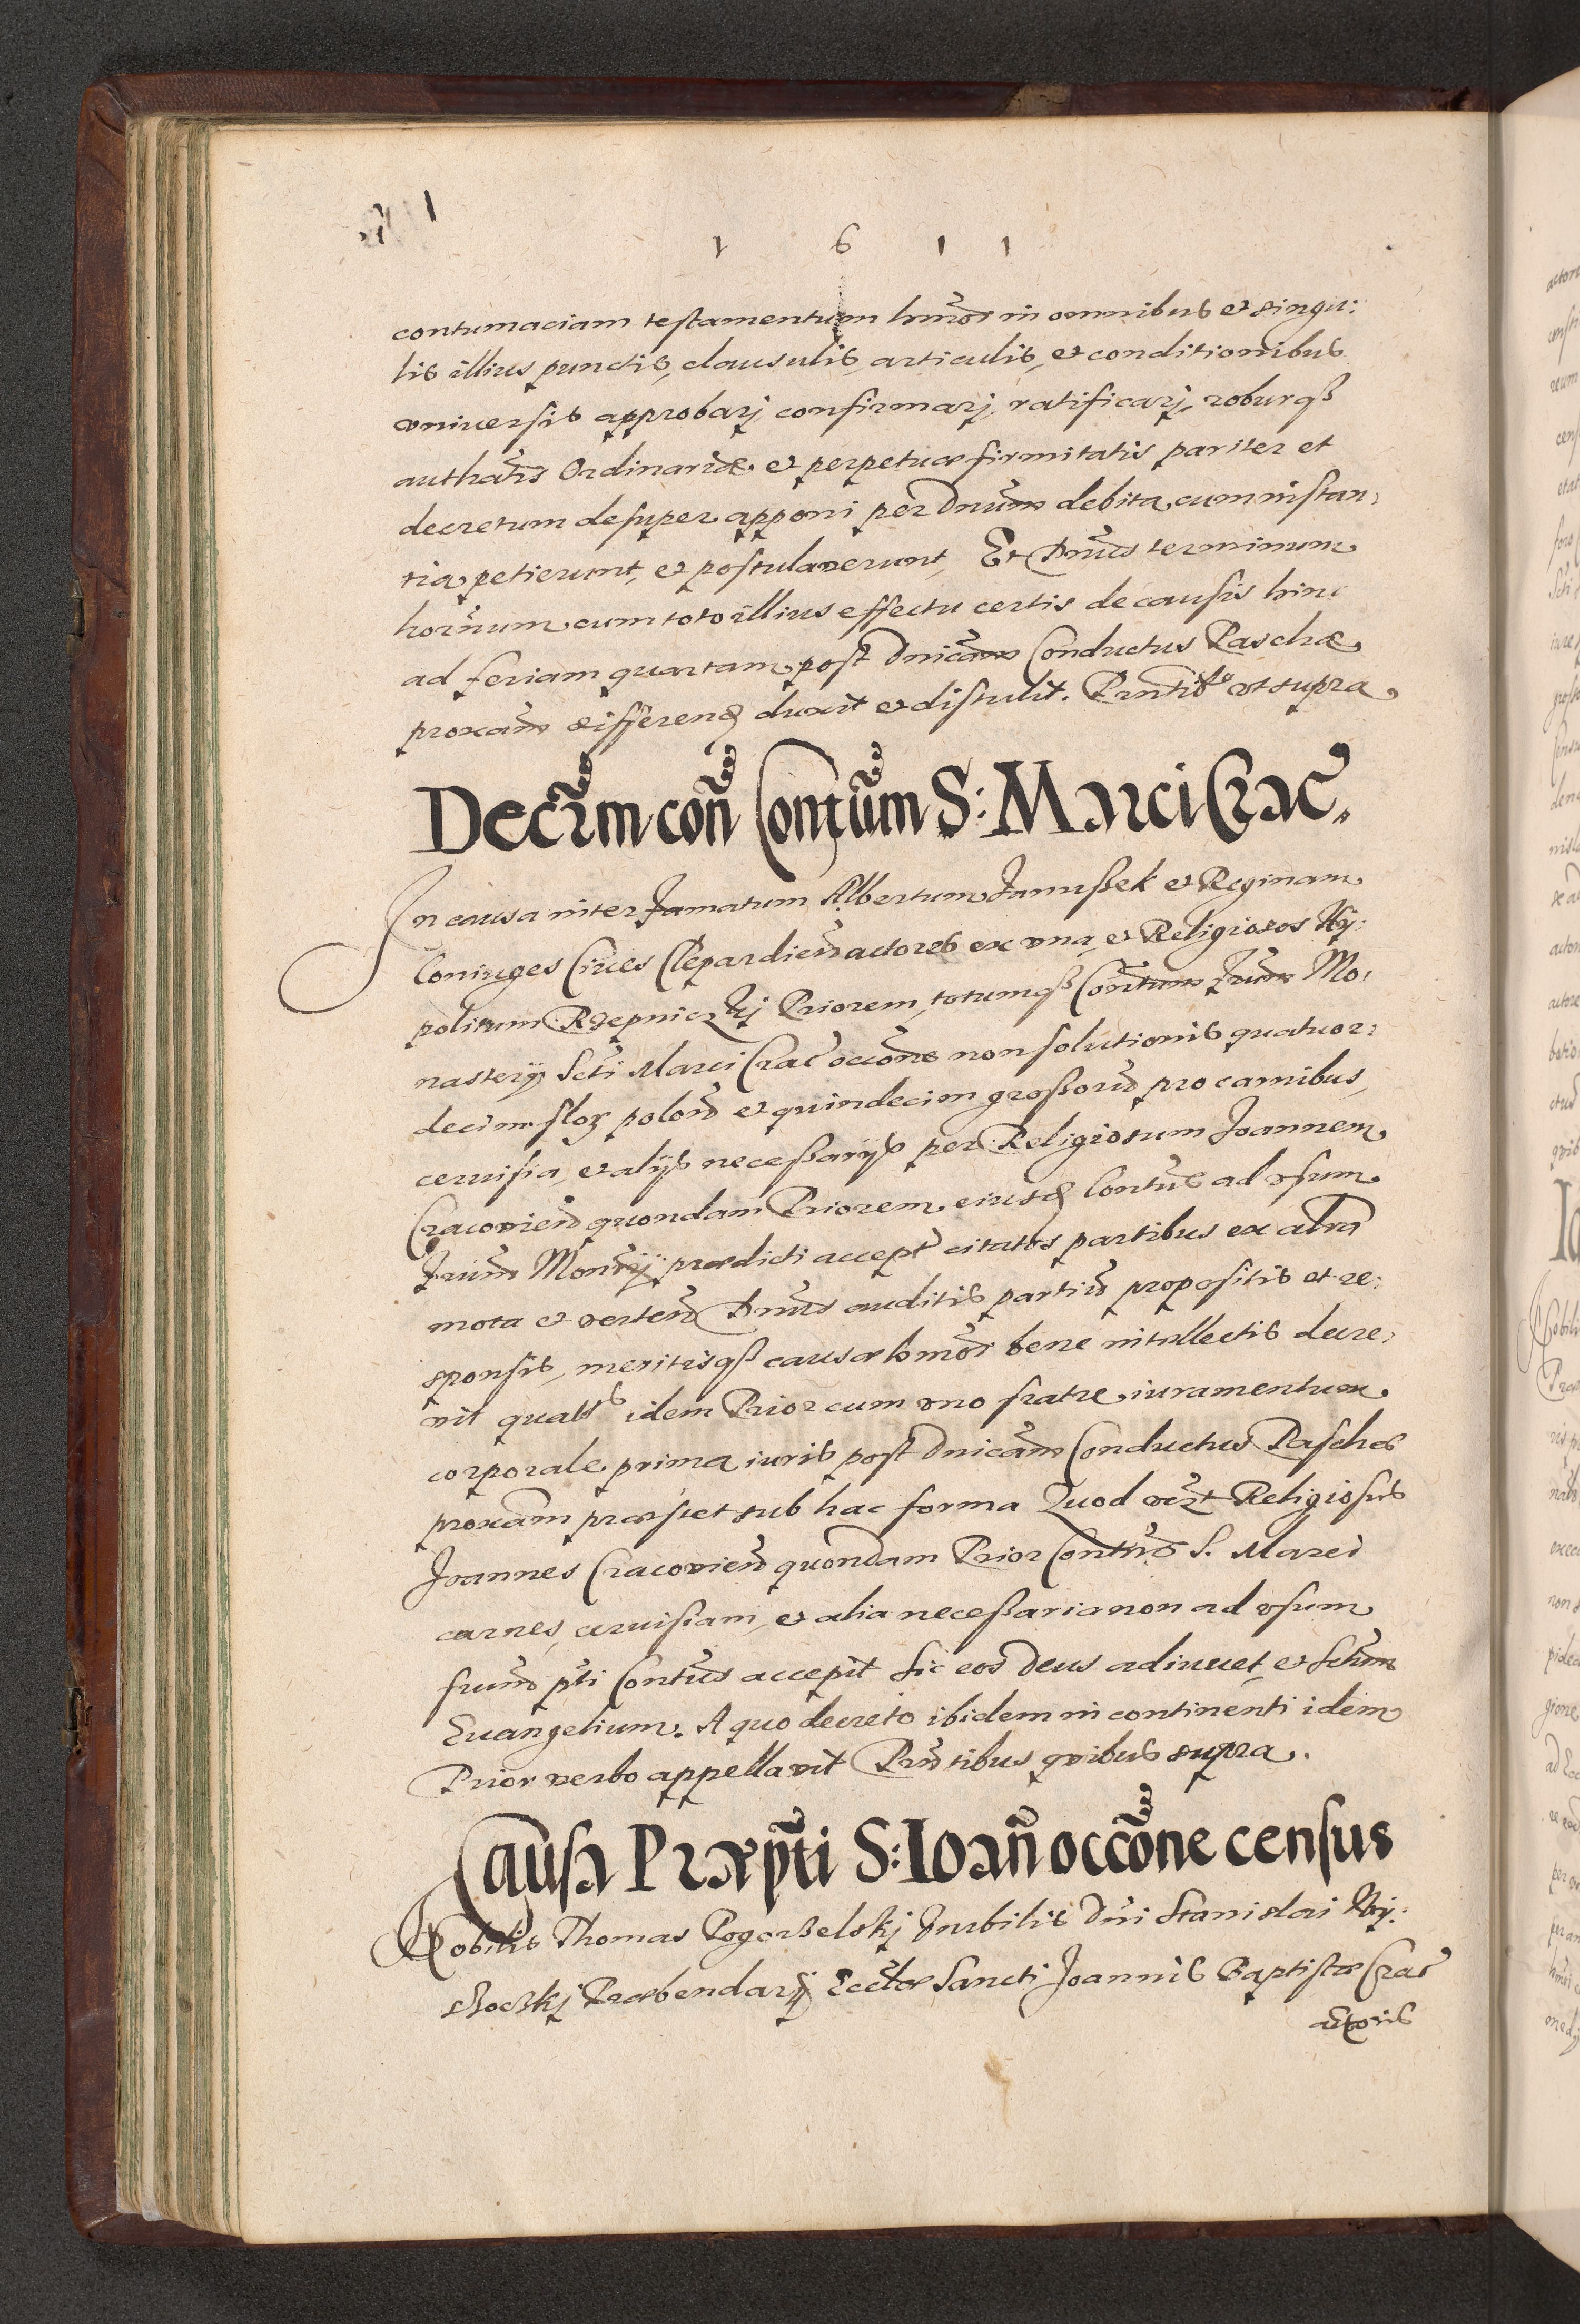 1 6 1 1
contumaciam testamentum hmōi in omnibus et singu:
lis illius punctis, clausulis, articulis, et conditionibus
vniuersis approbarj confirmarj, ratificarj, roburqß
authātis Ordinariæ et perpetuæ firmitatis pariter et
decretum desuper apponi per Dnūm debita cum instan:
tia petierunt, et postulauerunt, Et Dnūs terminum
hornūm cum toto illius effectu certis de causis hinc
ad feriam quartam post Dnicām Conductus Paschæ
proxām differend duxit et distulit. Pntib ut supra
Decrm con Contum S: Marci Crac
In causa inter famatum Albertum Janußek et Reginam
Coniuges Ciues Clepardien actores ex vna et Religiosos Hy:
politum Rzepniczkj Priorem, totumqß Contum frum Mo:
nasterij Scti Marci Crac occōne non solutionis quatuor:
decim flor polon et quindecim großoru pro carnibus,
ceruisia, et alijs neceßarijs per Religiosum Joannem
Cracouien quondam Priorem eiusd Contus ad vsum
frum Monrij prædicti accept citatos partibus ex altra
mota et verten Dnūs auditis partiu propositis et re:
sponsis, meritisqß causæ hmōi bene intellectis decre:
uit quats idem Prior cum vno fratre iuramentum
corporale prima iuris post Dnicām Conductus Pasches
proxam præstet sub hac forma Quod vezt Religiosus
Joannes Cracouien quondam Prior Contus S. Marci
carnes, ceruisiam, et alia neceßaria non ad vsum
frum pti Contus accepit sic eos Deus adiuuet et Sctum
Euangelium. A quo decreto ibidem in continenti idem
Prior verbo appellauit Pntibus quibus supra.
Causa Præpti S: Ioan occōne census
Nobilis Thomas Pogorzelskj Dni Stanislai
Præbendarij Eccłæ Sancti Joannis Baptistæ Crac
actoris